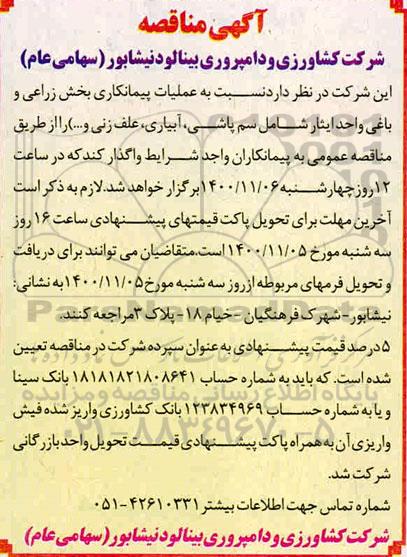 آگهی مناقصه
شرکت کشاورزی و دامپروری بینالود نیشابور (سهامی عام)
این شرکت در نظر دارد نسبت به عملیات پیمانکاری بخش زراعی و
باغی واحد ایثار شامل سم پاشی، آبیاری، علف زنی و...) را از طریق
مناقصه عمومی به پیمانکاران واجد شرایط واگذار کند که در ساعت
۱۲ روز چهارشنبه ۱۴۰۰/۱۱/۰۶ برگزار خواهد شد. لازم به ذکر است
آخرین مهلت برای تحویل پاکت قیمتهای پیشنهادی ساعت ۱۶ روز
سه شنبه مورخ ۱۴۰۰/۱۱/۰۵ است. متقاضیان می توانند برای دریافت
و تحویل فرمهای مربوطه از روز سه شنبه مورخ ۱۴۰۰/۱۱/۰۵ به نشانی:
نیشابور - شهرک فرهنگیان - خیام ۱۸ - پلاک ۳ مراجعه کنند.
۵ درصد قیمت پیشنهادی به عنوان سپرده شرکت در مناقصه تعیین
شده است. که باید به شماره حساب ۱۸۱۸۱۸۲۱۸۰۸۶۴۱ بانک سینا
و یا به شماره حساب ۱۲۳۸۳۴۹۶۹ بانک کشاورزی واریز شده فیش
واریزی آن به همراه پاکت پیشنهادی قیمت تحویل واحد بازرگانی
شرکت شد.
شماره تماس جهت اطلاعات بیشتر ۴۲۶۱۰۳۳۱-۰۵۱
شرکت کشاورزی و دامپروری بینالود نیشابور (سهامی عام)
ParsNamadData
پایگاه اطلاع رسانی مناقصه و مزایده
۰۲۱-۸۸۳۴۹۶۷۰-۵